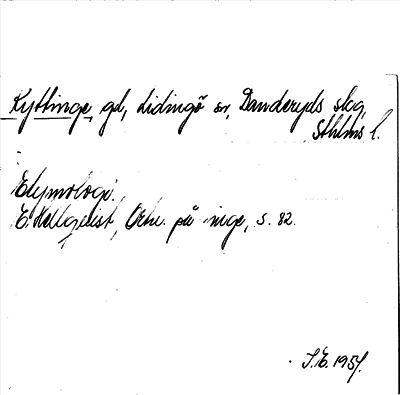 Kyttinge, gd, Lidingö sn, Danderyds skg,
Sthlms l.
Etymologi.
E. Hellquist, Ortn. på -inge, s. 82.
S.E. 1951.